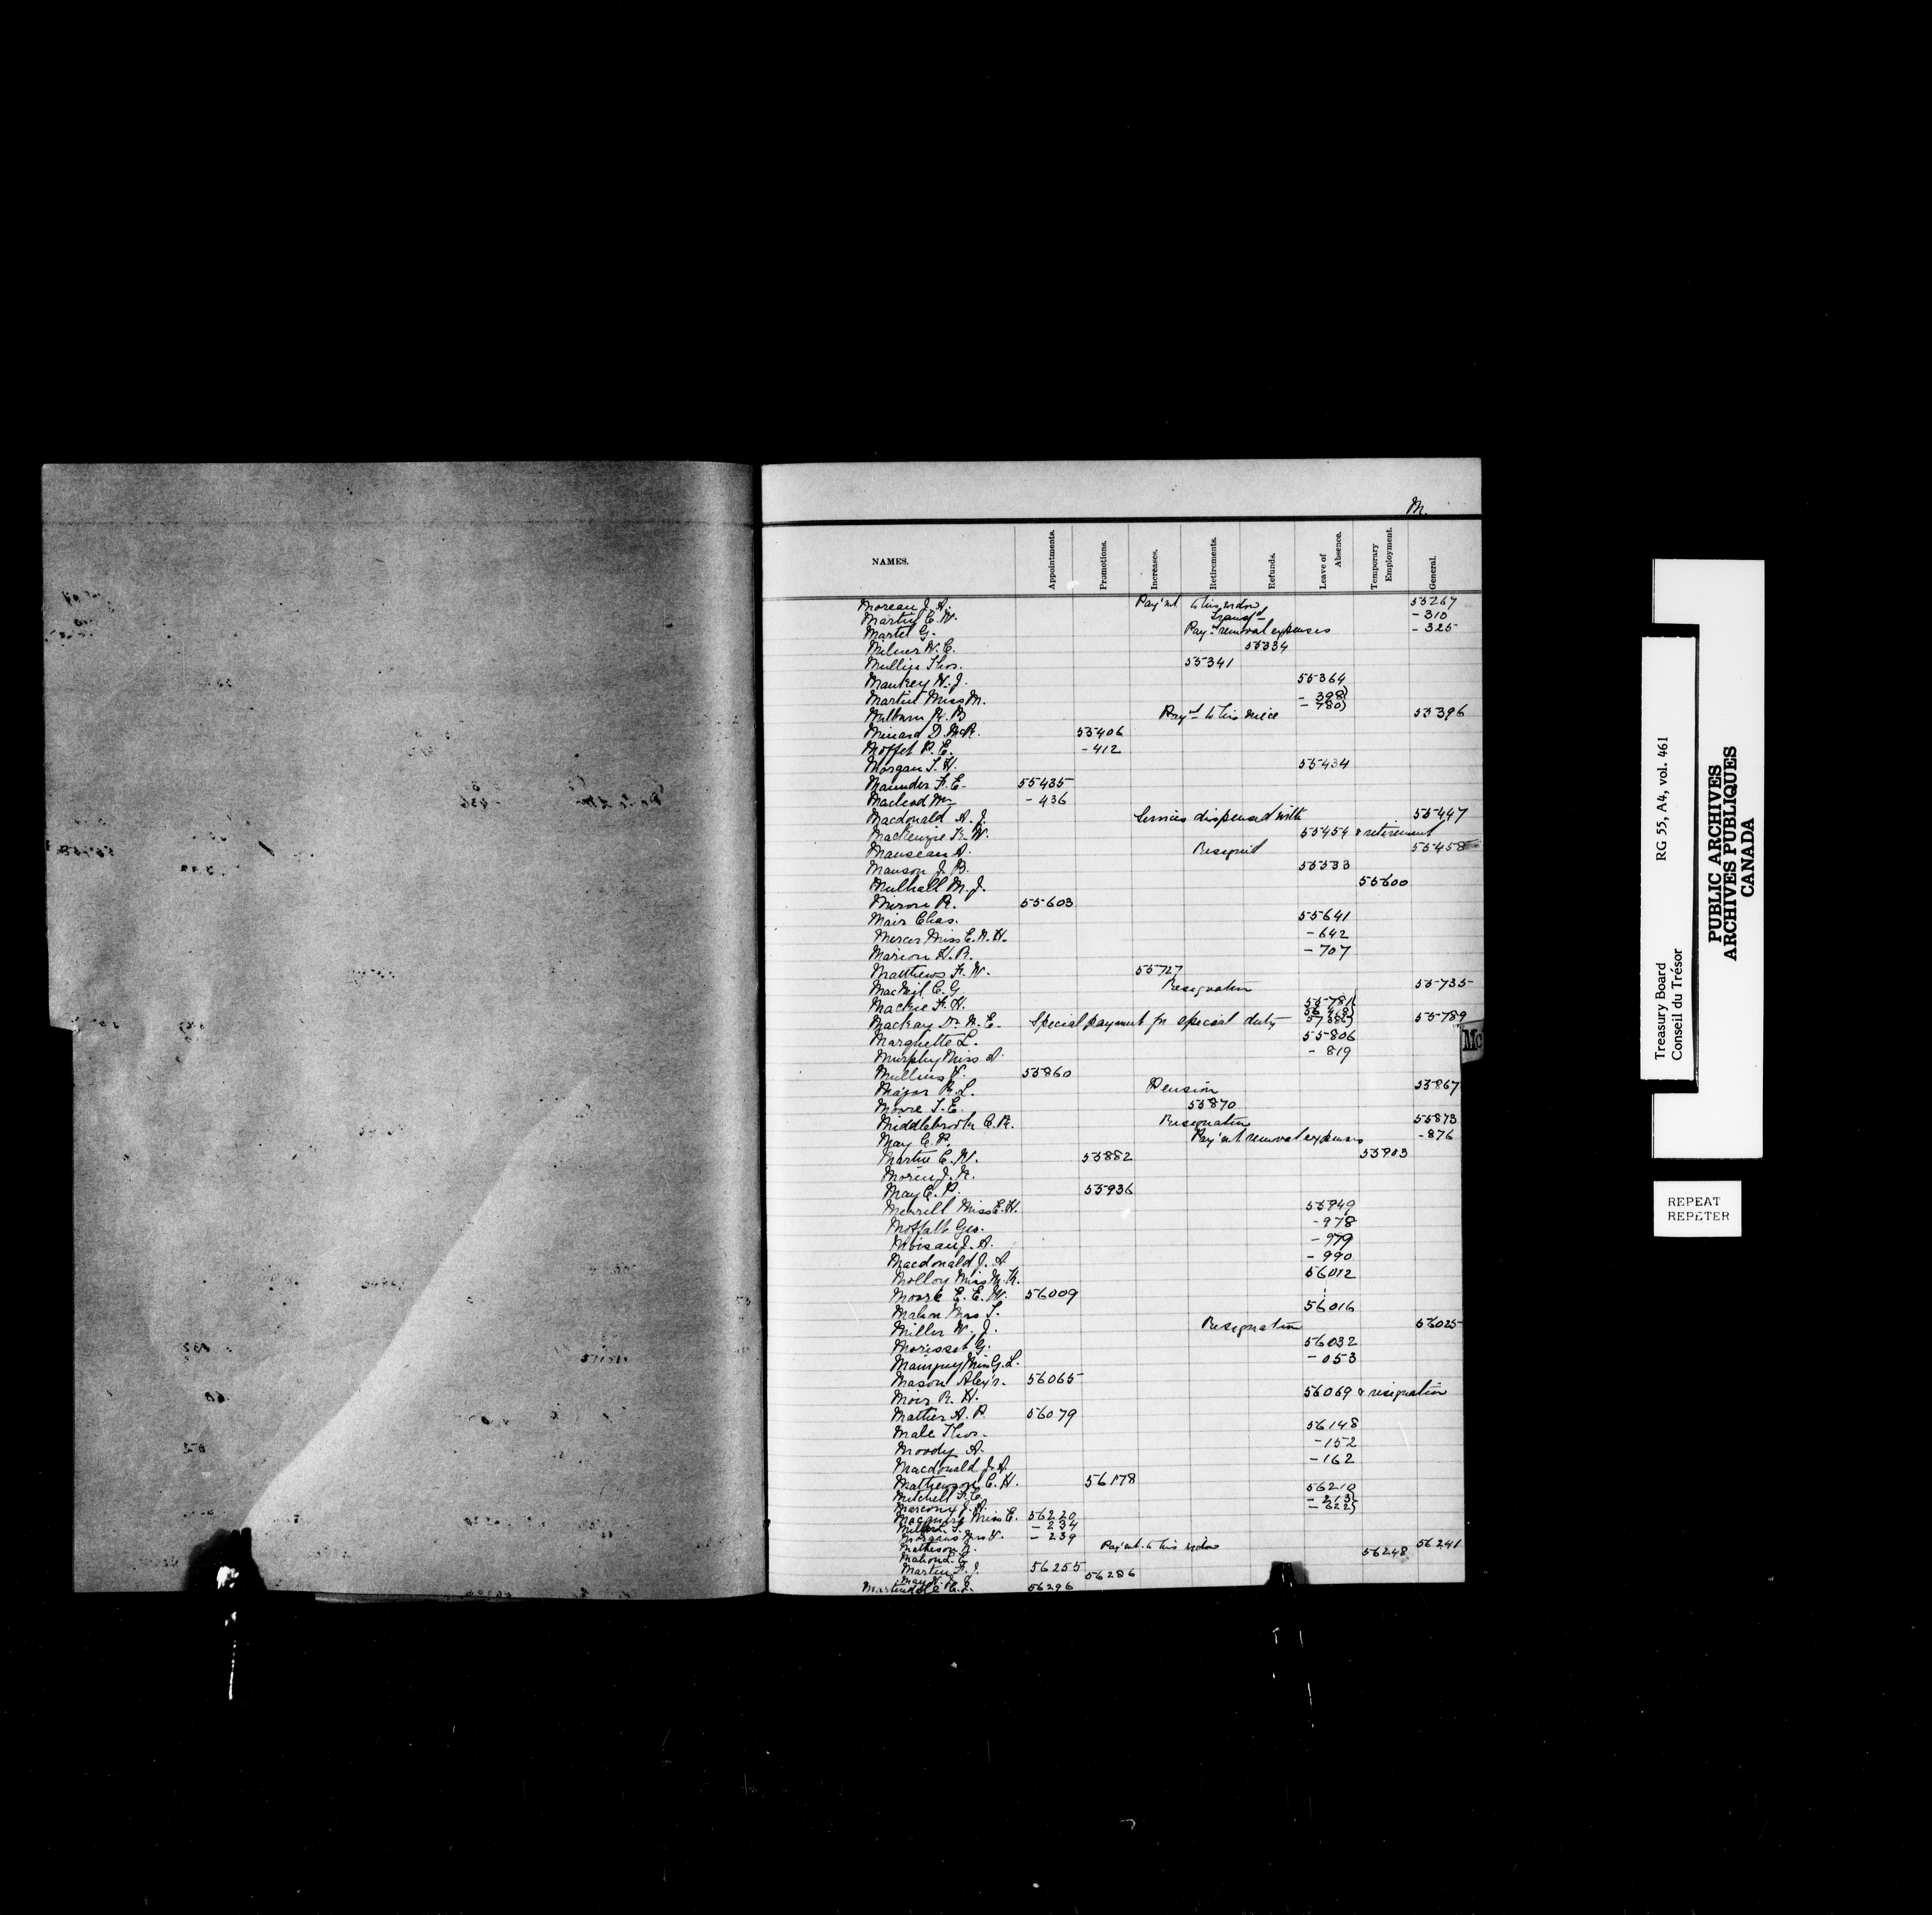 M.
NAMES. Appointments. Promotions. Increases. Retirements. Refunds. Leave of Absence. Temporary Employment. General.
Moreau J. A. Pay'mt to his widow 55267
Martin C. W. Transf'd - 310
Martel G. Pay't removal expenses - 325
Milner W. C. 55334
Mullin Thos. 55341
Mankey W. J. 55364
Martin Miss M. - 398) - 780)
Milburn R. B. Paymt to his niece 55396
Menard D. McR. 55406
Moffet P. E. - 412
Morgan T. H. 55434
Maunder F. E. 55435
Macleod Wm - 436
Macdonald A. J. Services dispensed with 55447
MacKenzie F. W. 55454 & retirement
Manseau A. Resigned 55458
Manson J. B. 55533
Mulhall M. J. 55600
Miron R. 55603
Mair Chas. 55641
Mercer Miss E. A. H. - 642
Marion H. R. - 707
Matthews F. W. 55727
MacNeil C. G. Resignation 55735
Mackie F. H. 55781
Mackay Dr. N. E. Special payment for special duty 55789
Marguette L. 55806
Murphy Miss A. - 819
Mullins V. 55860
Major R. L. Pension 55867
Moore T. E. 55870
Middlebrook C. R. Resignation 55873
May C. P. Pay'mt removal expenses - 876
Martin C. W. 55882 55903
Morin J. N.
May C. P. 55936
Merrill Miss E. H. 55949
Moffatt Geo. - 978
Moisan J. A. - 979
Macdonald J. A. - 990
Molloy Miss M. K. 56012
Moore E. E. W. 56009
Mahon Mrs T. 56016
Miller W. J. Resignation 56025
Morisset G. 56032
Mainguy Miss G. L. - 053
Mason Alex'r. 56065
Moir R. H. 56069 & resignation
Mather A. P. 56079
Male Thos. 56148
Moody A. - 152
Macdonald J. A. - 162
Mathewson C. H. 56178
Mitchell F. C. 56210
Marcoux J. A. - 213) - 622)
Macguire Miss E. 56220
Miller L. T. - 234
Morgans Mrs V. - 239
Matheson N. Pay'mt to his widow 56241
Mahond C. 56248
Martin P. J. 56255
May H. 56286
Martindale E. L. 56296
Mc
Treasury Board RG 55, A4, vol. 461
Conseil du Trésor
PUBLIC ARCHIVES
ARCHIVES PUBLIQUES
CANADA
REPEAT
REPETER